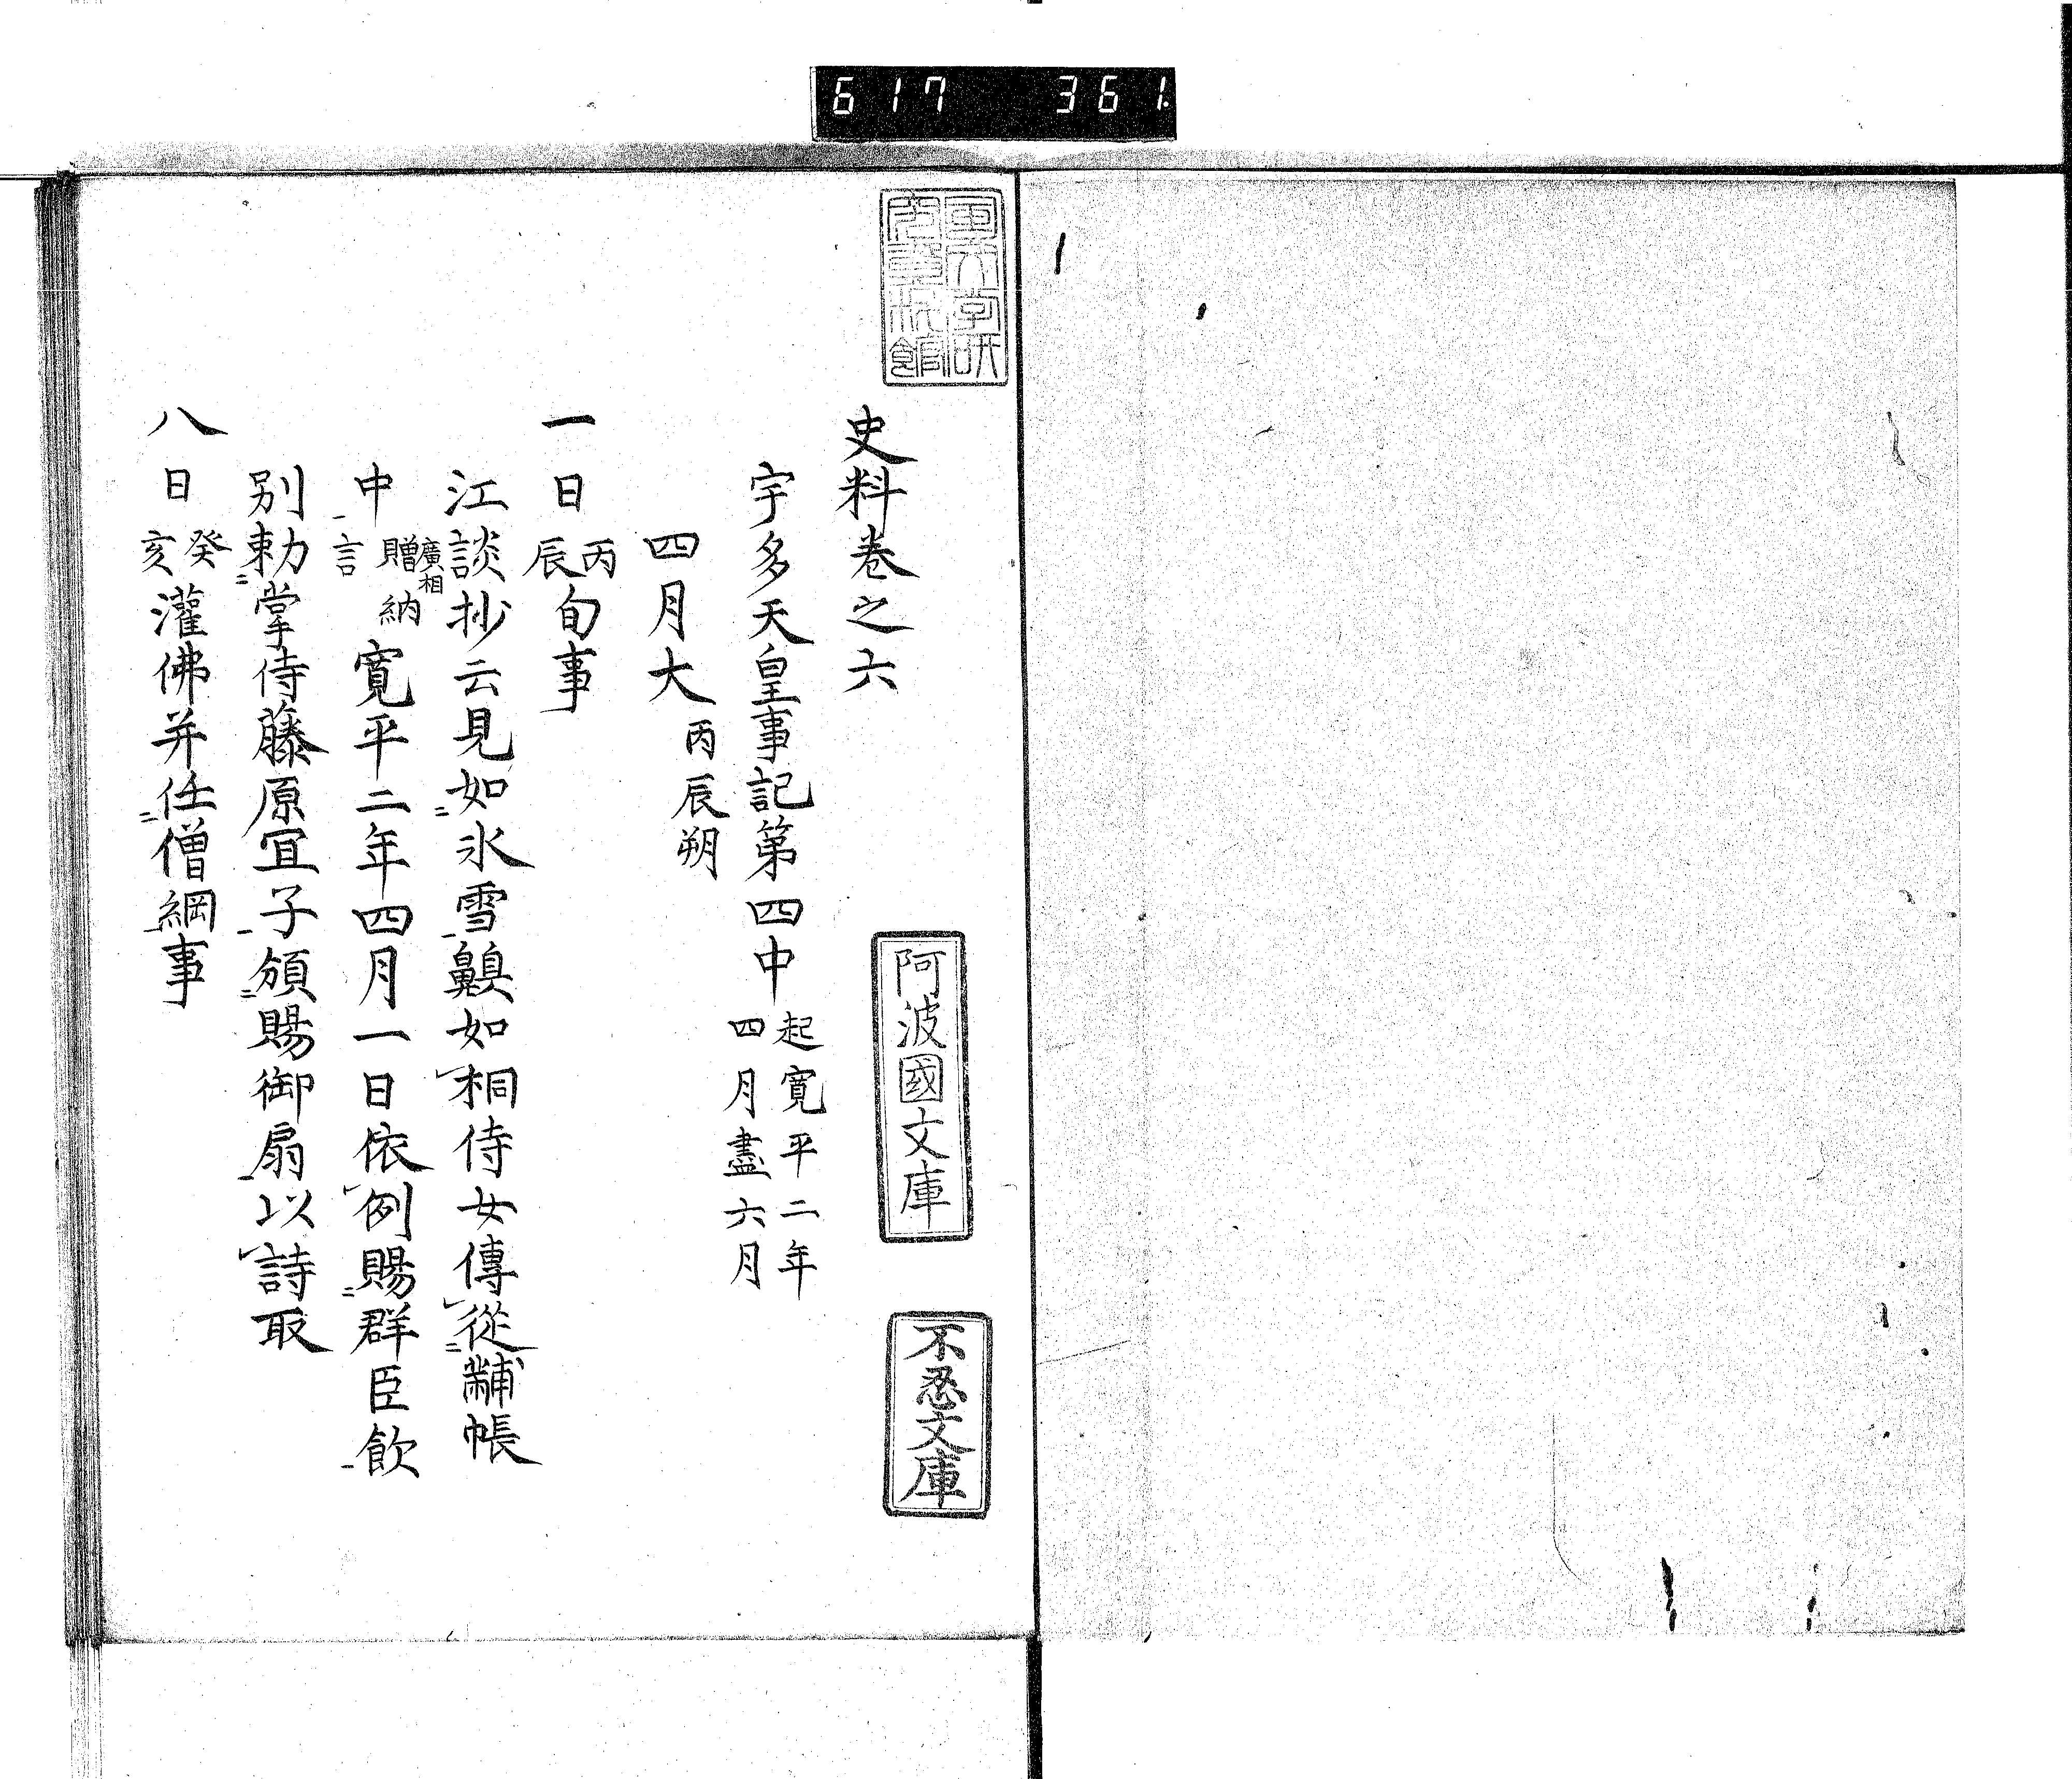 617 361
国文学研
究資料館
史料卷之六
阿波國文庫
不忍文庫
宇多天皇事記第四中 起寛平二年
四月盡六月
四月大 丙辰朔
一日丙辰旬事
江談抄云見如氷雪齅如桐侍女傳從黼帳
中 廣相 贈納言 寛平二年四月一日依例賜群臣飲
別勅掌侍藤原冝子頒賜御扇以詩取
八日癸亥灌佛并任僧綱事